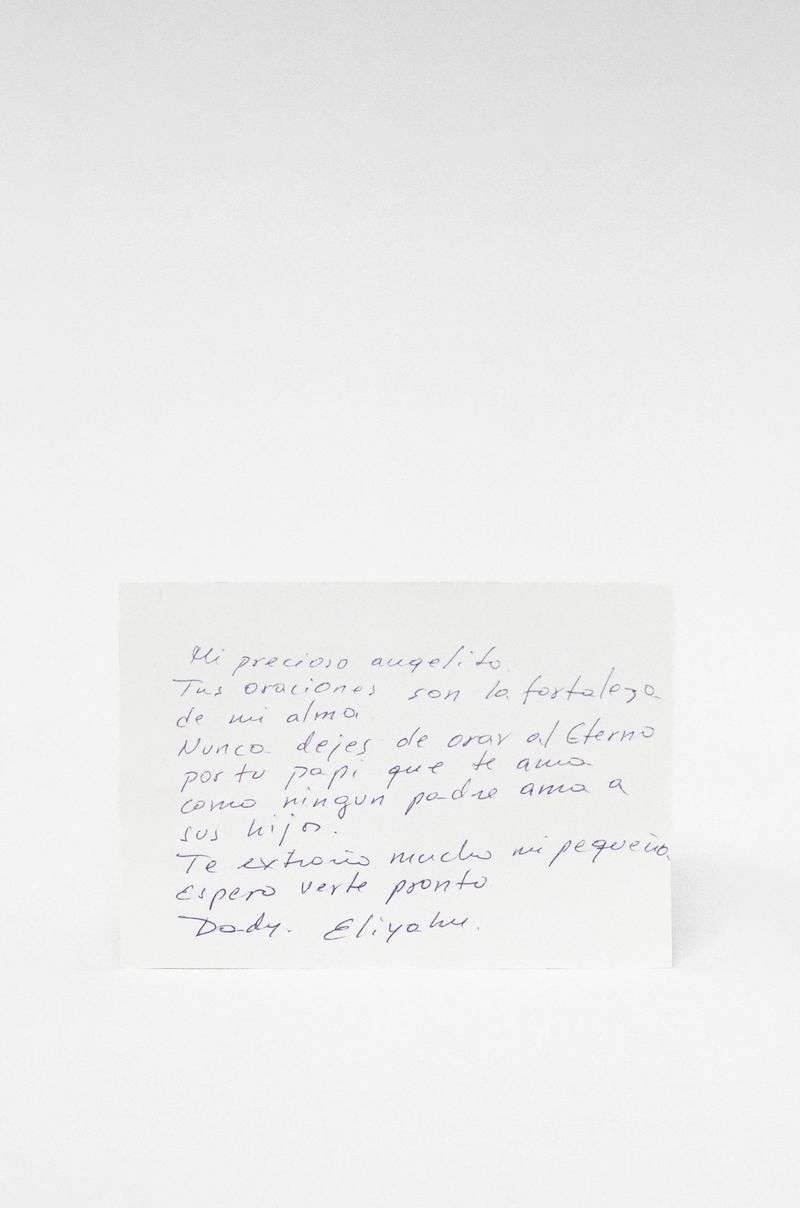 Mi precioso angelito
Tus oraciones son la fortaleza
de mi alma
Nunca dejes de orar al Eterno
por tu papi que te ama
como ningun padre ama a
sus hijos.
Te extraño mucho mi pequeña
Espero verte pronto
Dady. Eliyahu.